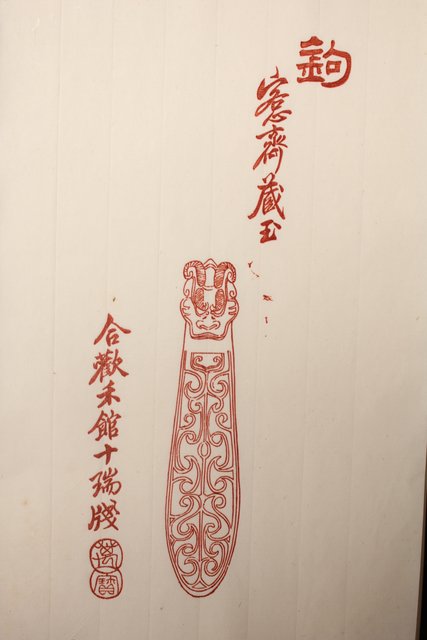 鉤
愙齋藏玉
合歡禾館十瑞牋